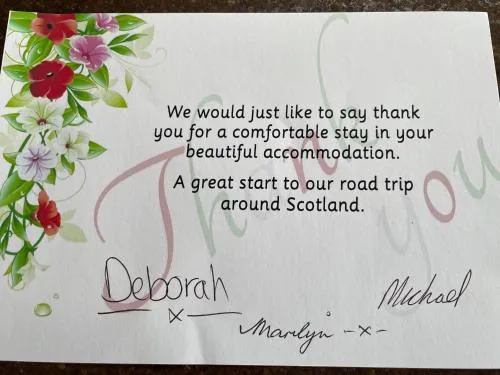 Thank you
We would just like to say thank
you for a comfortable stay in your
beautiful accommodation.
A great start to our road trip
around Scotland.
Deborah
x
Michael
Marilyn -x-